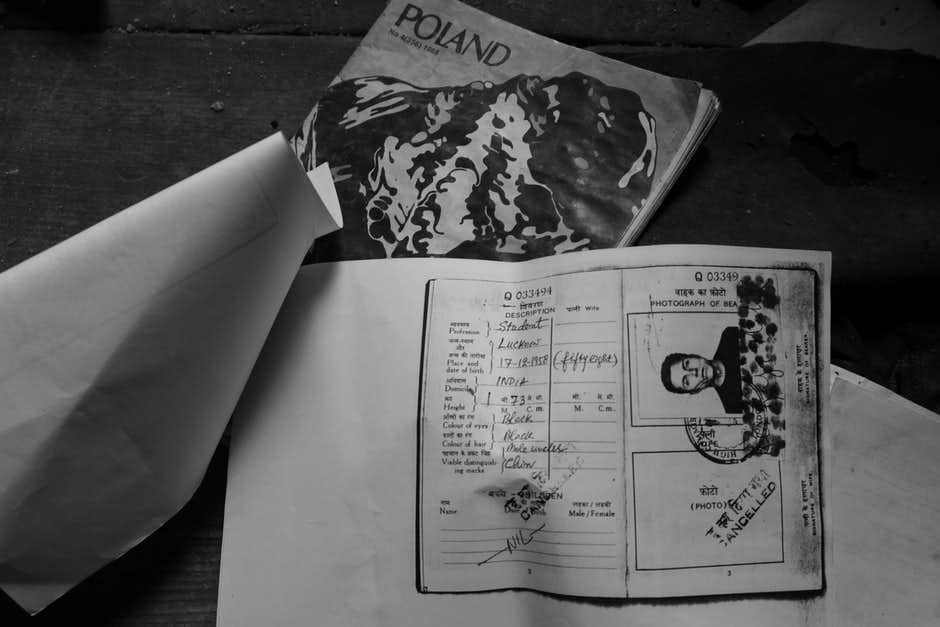 POLAND
No 4(256) 1968
Q 033494
विवरण
DESCRIPTION
पत्नी Wife
व्यवसाय
Profession
Student
जन्म-स्थान
और
जन्म की तारीख
Place and
date of birth
Lucknow
17-12-1958 (fifty eight)
अधिवास
Domicile
INDIA
कद
Height
1 मी. 73 से. मी.
M. C.m.
मी. से. मी.
M. C.m.
आँखों का रंग
Colour of eyes
Black
बालों का रंग
Colour of hair
Black
Visible distinguish-
ing marks
Mole under
Chin
बच्चे - CHILDREN
नाम
Name
लड़का / लड़की
Male / Female
NIL
2
Q 03349
वाहक का फोटो
PHOTOGRAPH OF BEA
HIGH
फोटो
(PHOTO)
CANCELLED
3
वाहक के हस्ताक्षर
SIGNATURE OF BEARER
पत्नी के हस्ताक्षर
SIGNATURE OF WIFE